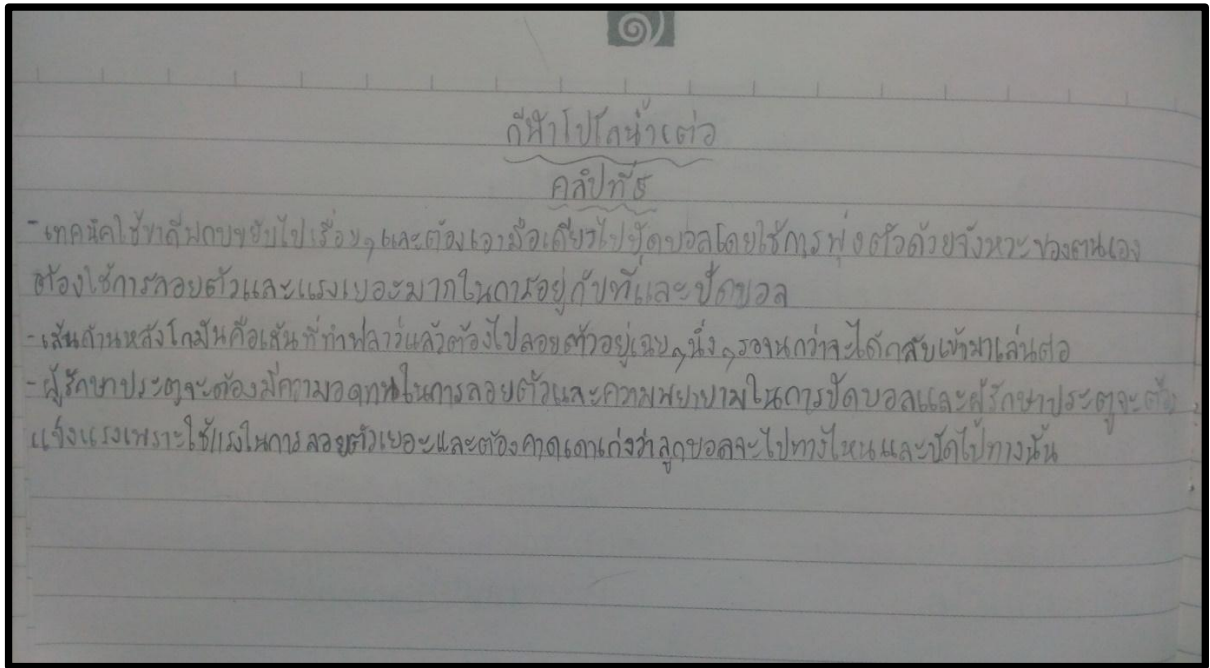 กีฬาโปโลน้ำต่อ
คลิปที่5
- เทคนิคใช้ขาตีพกบขยับไปเรื่อยๆและต้องเอามือเดียวไปปัดบอลโดยใช้การพุ่งตัวด้วยจังหวะของตนเอง
ต้องใช้การลอยตัวและแรงเยอะมากในการอยู่กับที่และปัดบอล
- เส้นด้านหลังโกมันคือเส้นที่ทำฟลาว์แล้วต้องไปลอยตัวอยู่เฉยๆนิ่งๆรอจนกว่าจะได้กลับเข้ามาเล่นต่อ
- ผู้รักษาประตูจะต้องมีความอดทนในการลอยตัวและความพยายามในการปัดบอลและผู้รักษาประตูจะต้อง
แข็งแรงเพราะใช้แรงในการลอยตัวเยอะและต้องคาดเดาเก่งว่าลูกบอลจะไปทางไหนและปัดไปทางนั้น